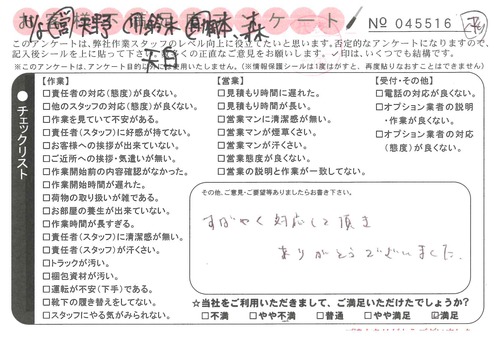 お客様 不満 アンケート No 045516
このアンケートは、弊社作業スタッフのレベル向上に役立てたいと思います。否定的なアンケートになりますので、
記入後シールを上に貼って下さい。多くの正直なご意見をお願いします。✓印は、いくつでも結構です。
※このアンケートは、アンケート目的以外には使用いたしません。(※情報保護シールは1度はがすと、再度貼りなおすことはできません)
チェックリスト
【作業】
□責任者の対応(態度)が良くない。
□他のスタッフの対応(態度)が良くない。
□作業を見ていて不安がある。
□責任者(スタッフ)に好感が持てない。
□お客様への挨拶が出来ていない。
□ご近所への挨拶・気遣いが無い。
□作業開始前の内容確認がなかった。
□作業開始時間が遅れた。
□荷物の取り扱いが雑である。
□お部屋の養生が出来ていない。
□作業時間が長すぎる。
□責任者(スタッフ)に清潔感が無い。
□責任者(スタッフ)が汗くさい。
□トラックが汚い。
□梱包資材が汚い。
□運転が不安(下手)である。
□靴下の履き替えをしてない。
□スタッフにやる気がみられない。
【営業】
□見積もり時間に遅れた。
□見積り時間が長い。
□営業マンに清潔感が無い。
□営業マンが煙草くさい。
□営業マンが汗くさい。
□営業態度が良くない。
□営業の説明と作業が一致してない。
【受付・その他】
□電話の対応が良くない。
□オプション業者の説明
・作業が良くない。
□オプション業者の対応
(態度)が良くない。
その他、ご意見・ご要望等ありましたらお書き下さい。
すばやく対応して頂き
ありがとうございました。
☆当社をご利用いただきまして、ご満足いただけたでしょうか?
□不満 □やや不満 □普通 □やや満足 ☑満足